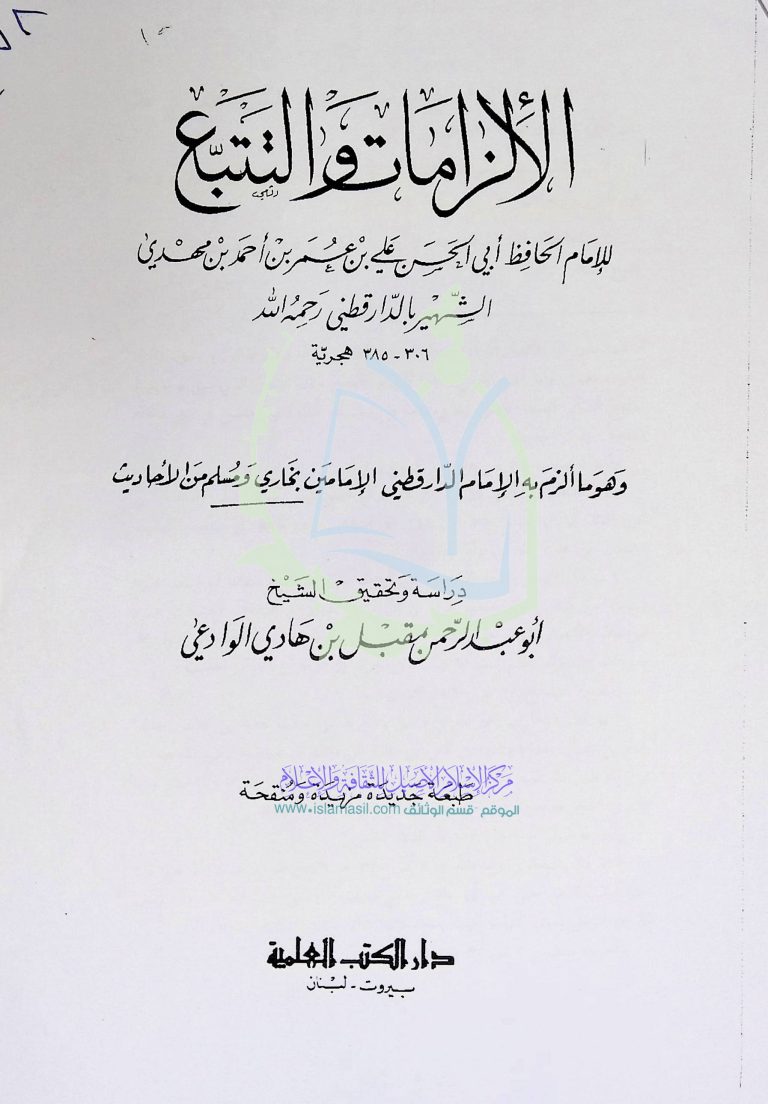 الإلزامات والتتبع
للإمام الحافظ أبي الحسن علي بن عمر بن أحمد بن مهدي
الشهير بالدارقطني رحمه الله
٣٠٦ - ٣٨٥ هجرية
وهو ما ألزم به الإمام الدارقطني الإمامين بخاري ومسلم من الأحاديث
دراسة وتحقيق الشيخ
أبو عبد الرحمن مقبل بن هادي الوادعي
مركز الإسلام الأصيل للثقافة والإعلام
طبعة جديدة مزيدة ومنقحة
الموقع - قسم الوثائق www.islamasil.com
دار الكتب العلمية
بيروت - لبنان